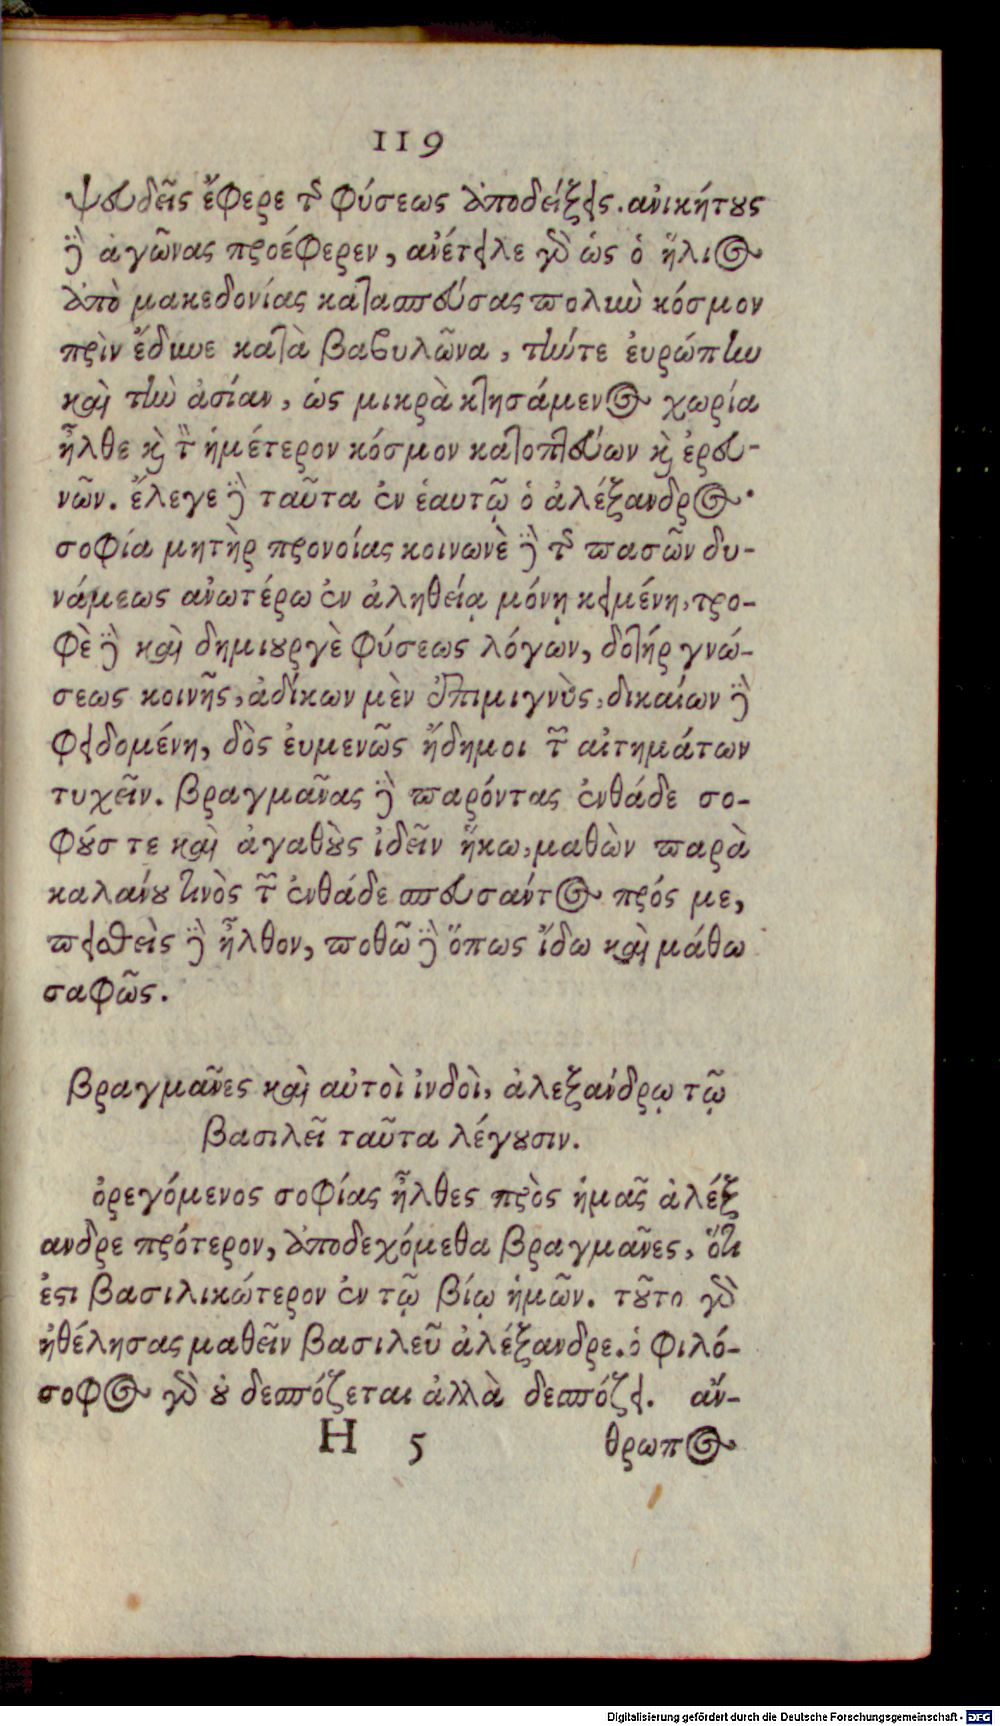 119
ψευδεῖς ἔφερε τ῀ φύσεως ἀποδείξεις. ανικήτους
δὲ ἀγῶνας προέφερεν, ανέτειλε γὰρ ὡς ὁ ἥλιος
ἀπὸ μακεδονίας κατασπεύσας πολὺν κόσμον
πρὶν ἔδυνε κατὰ βαβυλῶνα, τήντε ἐυρώπην
καὶ τὴν ἀσίαν, ὡς μικρὰ κτησάμενος χωρία
ἦλθε καὶ τὸν ἡμέτερον κόσμον κατοπτεύων καὶ ἐρευ-
νῶν. ἔλεγε δὲ ταῦτα ἐν ἑαυτῷ ὁ ἀλέξανδρος·
σοφία μητὴρ προνοίας κοινωνὲ δὲ τῆς πασῶν δυ-
νάμεως ανωτέρω ἐν ἀληθείᾳ μόνῃ κειμένη, τρο-
φὲ δὲ καὶ δημιουργὲ φύσεως λόγων, δοτήρ γνώ-
σεως κοινῆς, ἀδίκων μὲν ἐπιμιγνὺς, δικαίων δὲ
φειδομένη, δὸς ἐυμενῶς ἤδημοι τῶν αἰτημάτων
τυχεῖν. βραγμᾶνας δὲ παρόντας ἐνθάδε σο-
φούς τε καὶ ἀγαθοὺς ἰδεῖν ἥκω, μαθὼν παρὰ
καλανού τινὸς τῶν ἐνθάδε σπευσαντος πρός με,
πειθεὶς δὲ ἦλθον, ποθῶ δὲ ὅπως ἴδω καὶ μάθω
σαφῶς.
βραγμᾶνες καὶ αὐτοὶ ἰνδοὶ, ἀλεξάνδρῳ τῷ
βασιλεῖ ταῦτα λέγουσιν.
ὀρεγόμενος σοφίας ἦλθες πρὸς ἡμᾶς ἀλέξ
ανδρε πρότερον, ἀποδεχόμεθα βραγμᾶνες, ὅτι
ἐστι βασιλικώτερον ἐν τῷ βίῳ ἡμῶν. τοῦτο γὰρ
ἠθέλησας μαθεῖν βασιλεῦ ἀλέξανδρε. ὁ φιλό-
σοφος γὰρ οὐ δεσπόζεται ἀλλὰ δεσπόζει. ἄν-
H 5 θρωπος
Digitalisierung gefördert durch die Deutsche Forschungsgemeinschaft - DFG